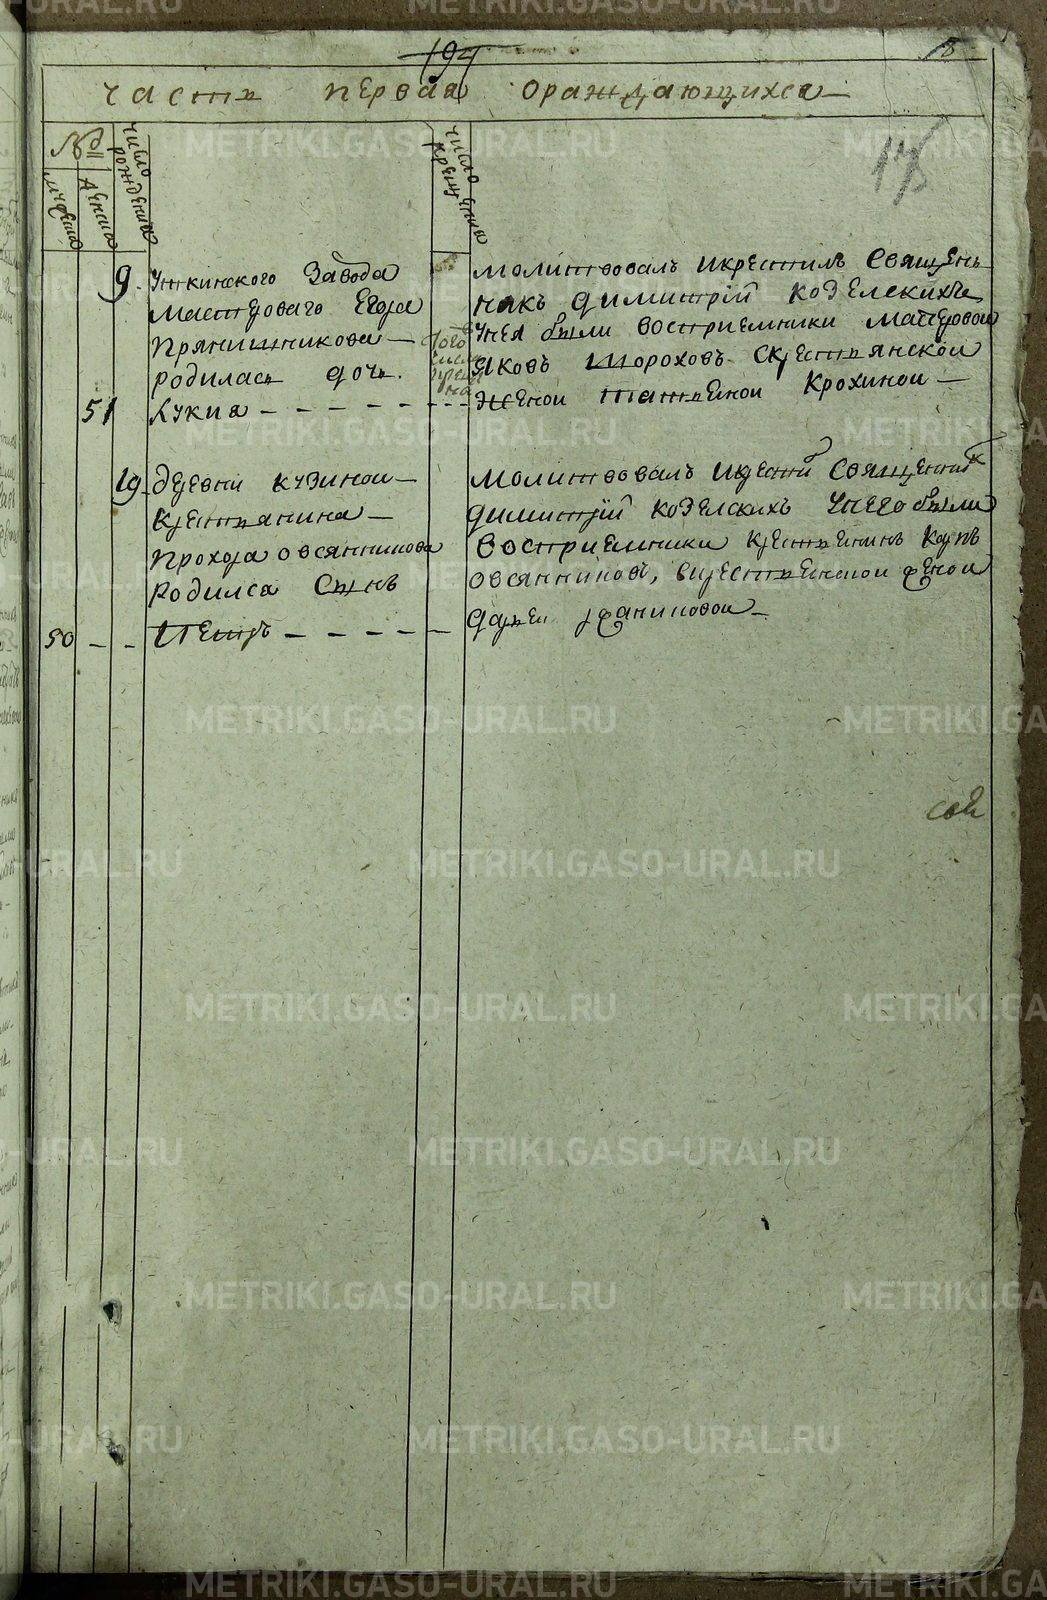 194
часть первая ораждающихса
175
№
мужеска
женска
число рождения
число крещения
9. Уткинского завода
мастероваго Егора
Прянишникова —
родилась дочь.
51 Лукиа
того
молитвовалъ икрестилъ Священь
никъ димитрїй козелскихъ
Унея были восприемники мастеровои
Яковъ Шороховъ Скрестьянской
женой татьяной Крохиной —
19 деревни кузиной —
крестьянина —
Прохора овсянникова
Родилса Сынъ
50 Петръ
молитвовалъ икрестил Священник
димитрїй козелскихъ Унего были
восприемники крестьенинъ Карпъ
овсянниковъ, икрестьенской женой
дарьей
METRIKI.GASO-URAL.RU